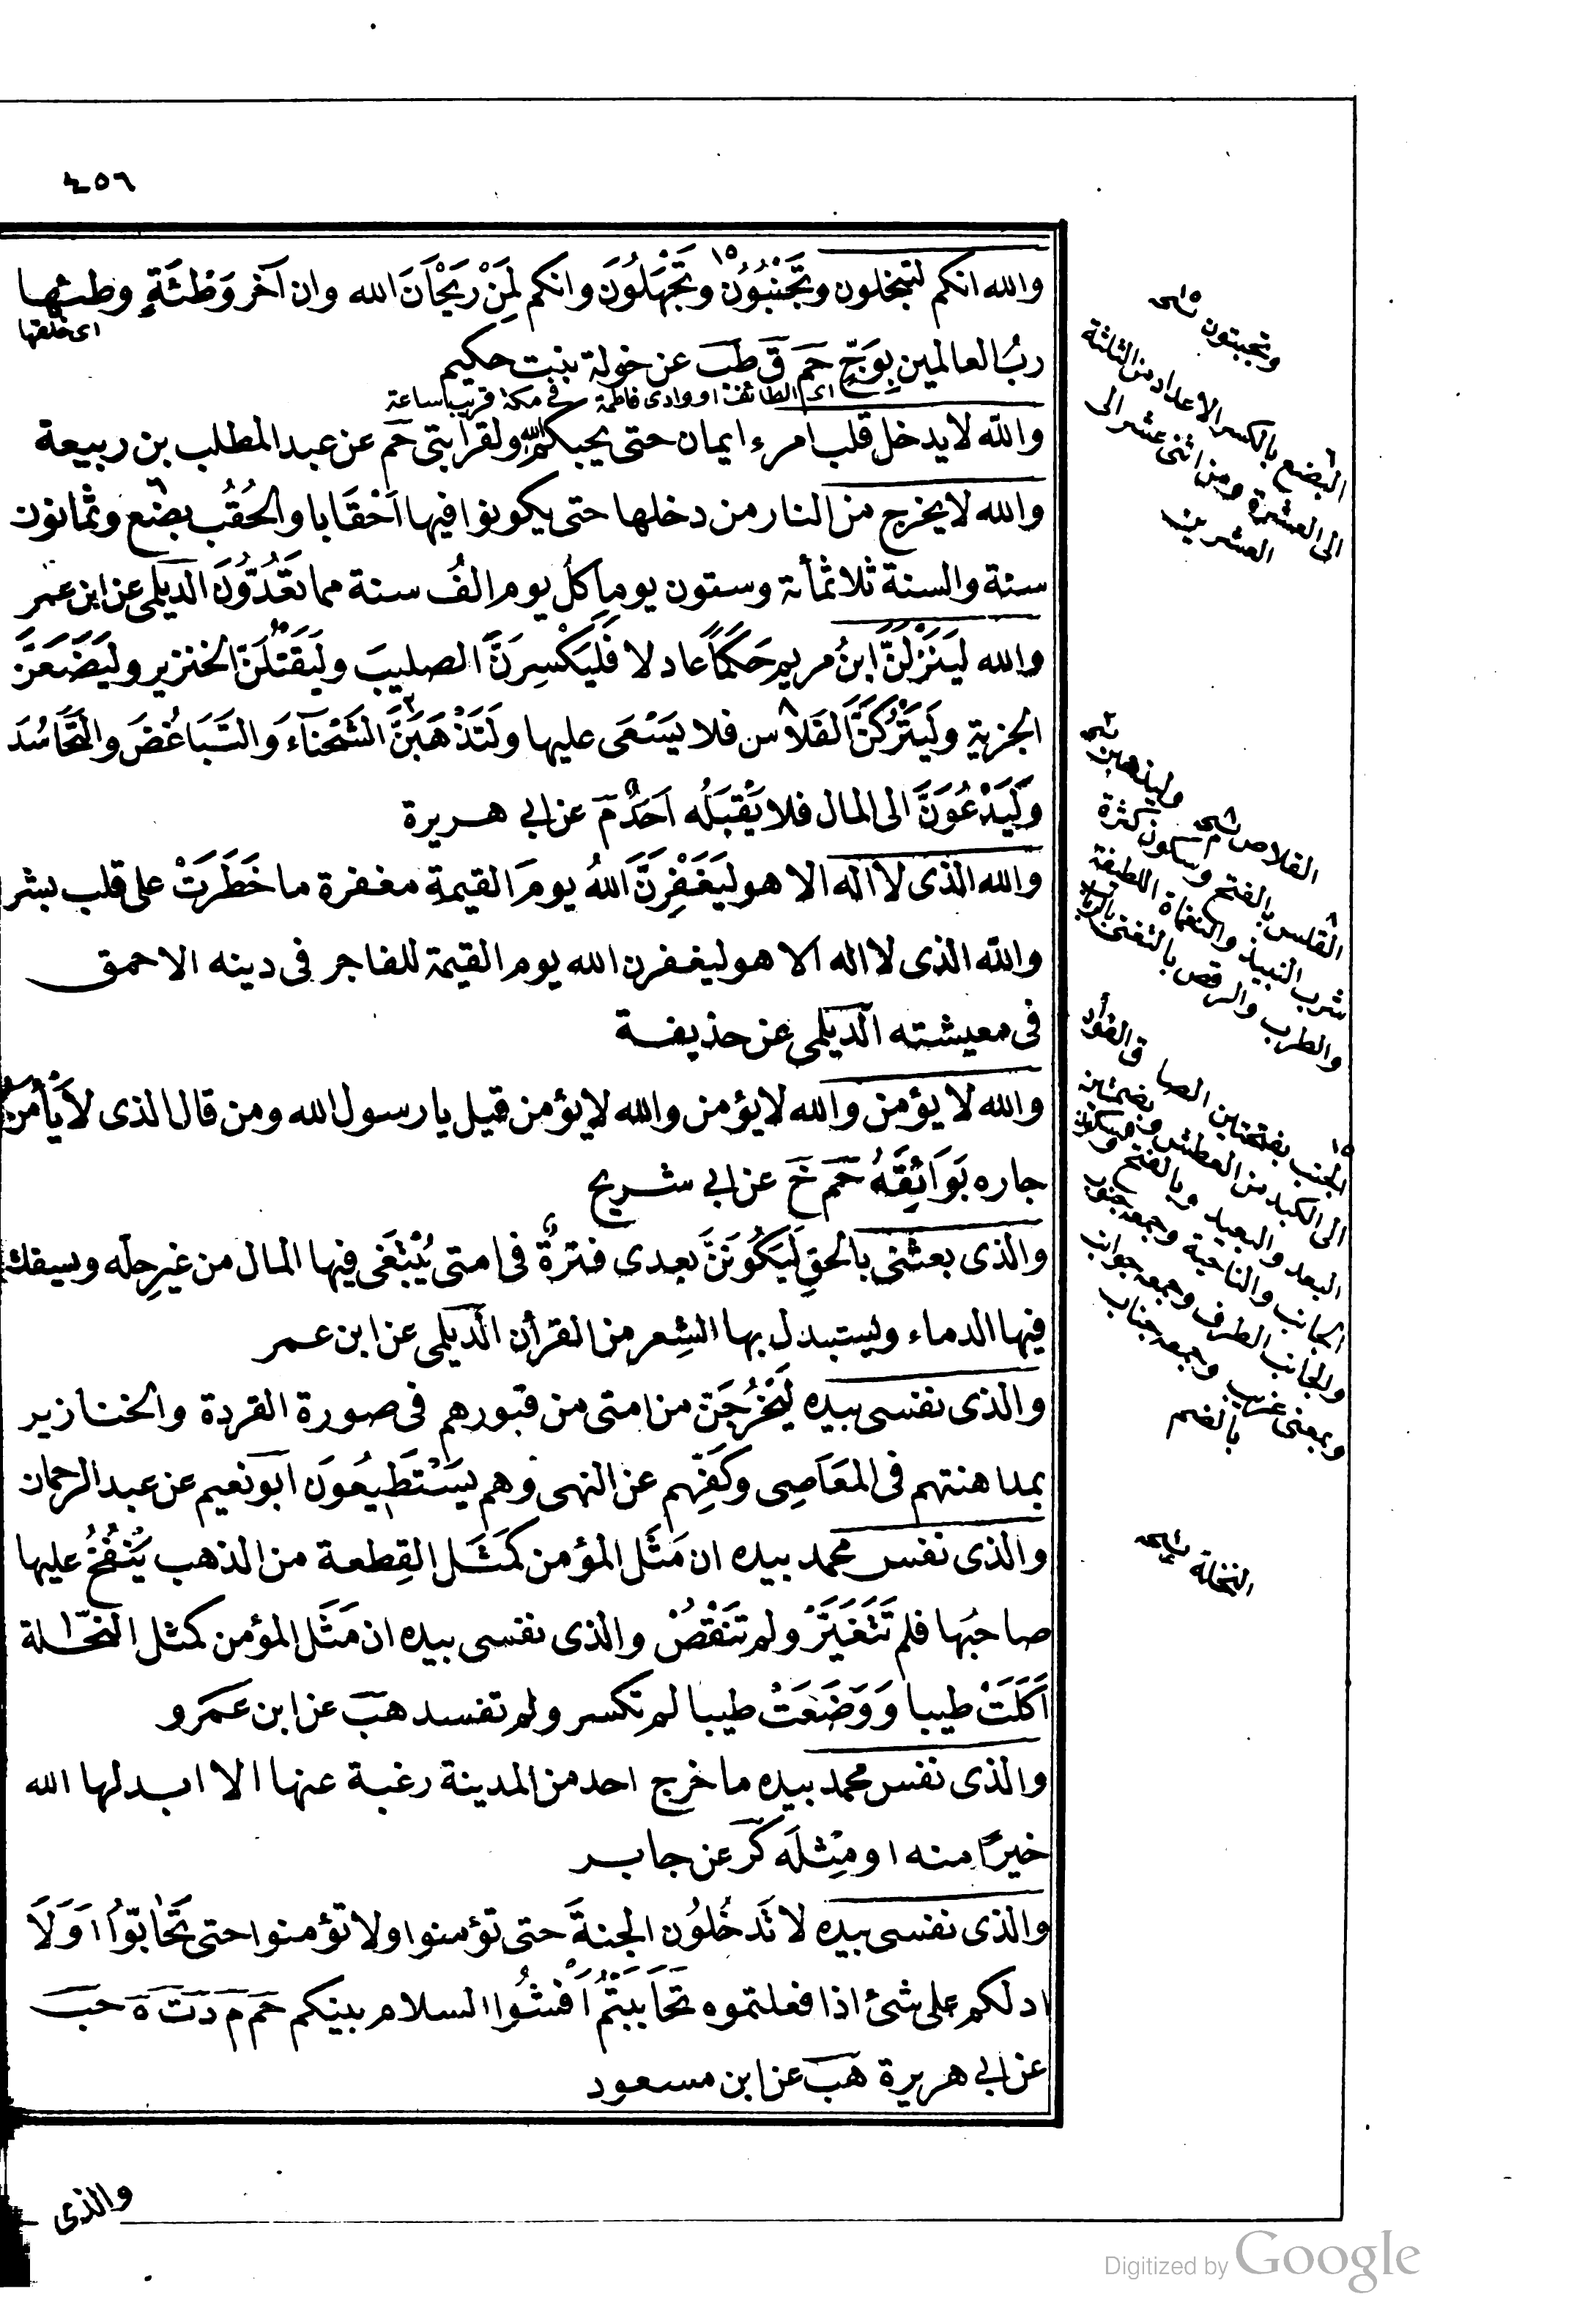 ٤٥٦
والله انكم لتبخلون وتَجْنُبُونَ١٥ وتَجْهَلُونَ وانكم لَمِنْ رَيْحَانَ الله وان آخر وَطْئَةٍ وطئها
اى خلقها
ربُّ العالمين بِوَجٍّ حَمَ قَ طَبَ عن خولة بنت حكيم
اى الطائف او وادى فاطمة فى مكة قريبا ساعة
والله لا يدخل قلب امرء ايمان حتى يحبكم لله ولقرابتى حَمَ عن عبد المطلب بن ربيعة
والله لا يخرج من النار من دخلها حتى يكونوا فيها اَحْقَابا والحُقُب بضع٦ وثمانون
سنة والسنة ثلاثمأة وستون يوما كلُ يوم الفُ سنة مما تَعُدُّونَ الديلمى عن ابن عمر
والله لَيَنْزِلَنَّ ابنُ مريم حَكَمًا عادلا فَلَيَكْسِرَنَّ الصليبَ ولَيَقْتُلَنَّ الخنزير وليَضَعَنَّ
الجزية ولَيَتْرُكَنَّ القَلاس٨ فلا يَسْعَى عليها ولَتَذْهَبَنَّ٢ الشَحْناءَ وَالتَبَاغُضَ والتَحَاسُدَ
ولَيَدْعُوَنَّ الى المال فلا يَقْبَلُه اَحَدٌ مَ عن ابى هريرة
والله الذى لا اله الا هو ليَغْفِرَنَّ اللهُ يومَ القيمةِ مغفرة ما خَطَرَتْ على قلب بشر
والله الذى لا اله الا هو ليغفرن الله يوم القيمة للفاجر فى دينه الاحمق
فى معيشته الديلمى عن حذيفة
والله لا يؤمن والله لا يؤمن والله لا يؤمن قيل يا رسول الله ومن قال الذى لا يَأْمن
جاره بَوَائِقَهُ حَمَ خَ عن ابى شريح
والذى بعثنى بالحقِ لَيَكُونَنَّ بعدى فترةٌ فى امتى يُبْتَغَى فيها المال من غيرِ حِلّه ويسفك
فيها الدماء ويستبدل بها الشِعر من القرأن الديلمى عن ابن عمر
والذى نفسى بيده لَيَخْرُجَنّ من امتى من قبورهم فى صورة القردة والخنازير
بمداهنتهم فى المَعَاصِى وكَفِّهم عن النهى وهم يَسْتَطِيعُونَ ابو نعيم عن عبد الرحمان
والذى نفس محمد بيده ان مَثَل المؤمن كمَثَل القِطعة من الذهب يَنْفُخُ عليها
صاحبُها فلم تَتَغَيَّرْ ولم تَنْقُصْ والذى نفسى بيده ان مَثَل المؤمن كمثل النحلة
اَكَلَتْ طيبا وَوَضَعَتْ طيبا لم تكسر ولم تفسد هَبَ عن ابن عَمَرو
والذى نفس محمد بيده ما خرج احد من المدينة رغبة عنها الا ابدلها الله
خيرًا منه او مِثلَه كَرَ عن جابر
والذى نفسى بيده لا تَدخُلُون الجنةَ حتى تؤمنوا ولا تؤمنوا حتى تَحَابّوا اَوَلَا
ادلكم على شئ اذا فعلتموه تحَابَبْتُم اَفْشُوا السلام بينكم حَمَ مَ دَ تَ هَ حَبَ
عن ابى هريرة هَبَ عن ابن مسعود
والذى
وتجبنون
٦ البضع بالكسر الاعداد من الثلثة
الى العشرة ومن اثنى عشر الى
العشرين
وليذهبن
القلاص
٨ القلس بالفتح وسكون كثرة
شرب النبيذ والنغماة اللطيفة
والطرب والرقص بالتغنى
١٥ الجنب بفتحتين
الى الكبد من العطش
البعد والبعيد وبالفتح
الجانب والناحية وجمعه جنوب
والجانب الطرف وجمعه جوانب
وبمعنى غريب وجمعه جناب
بالضم
النخلة
Digitized by Google